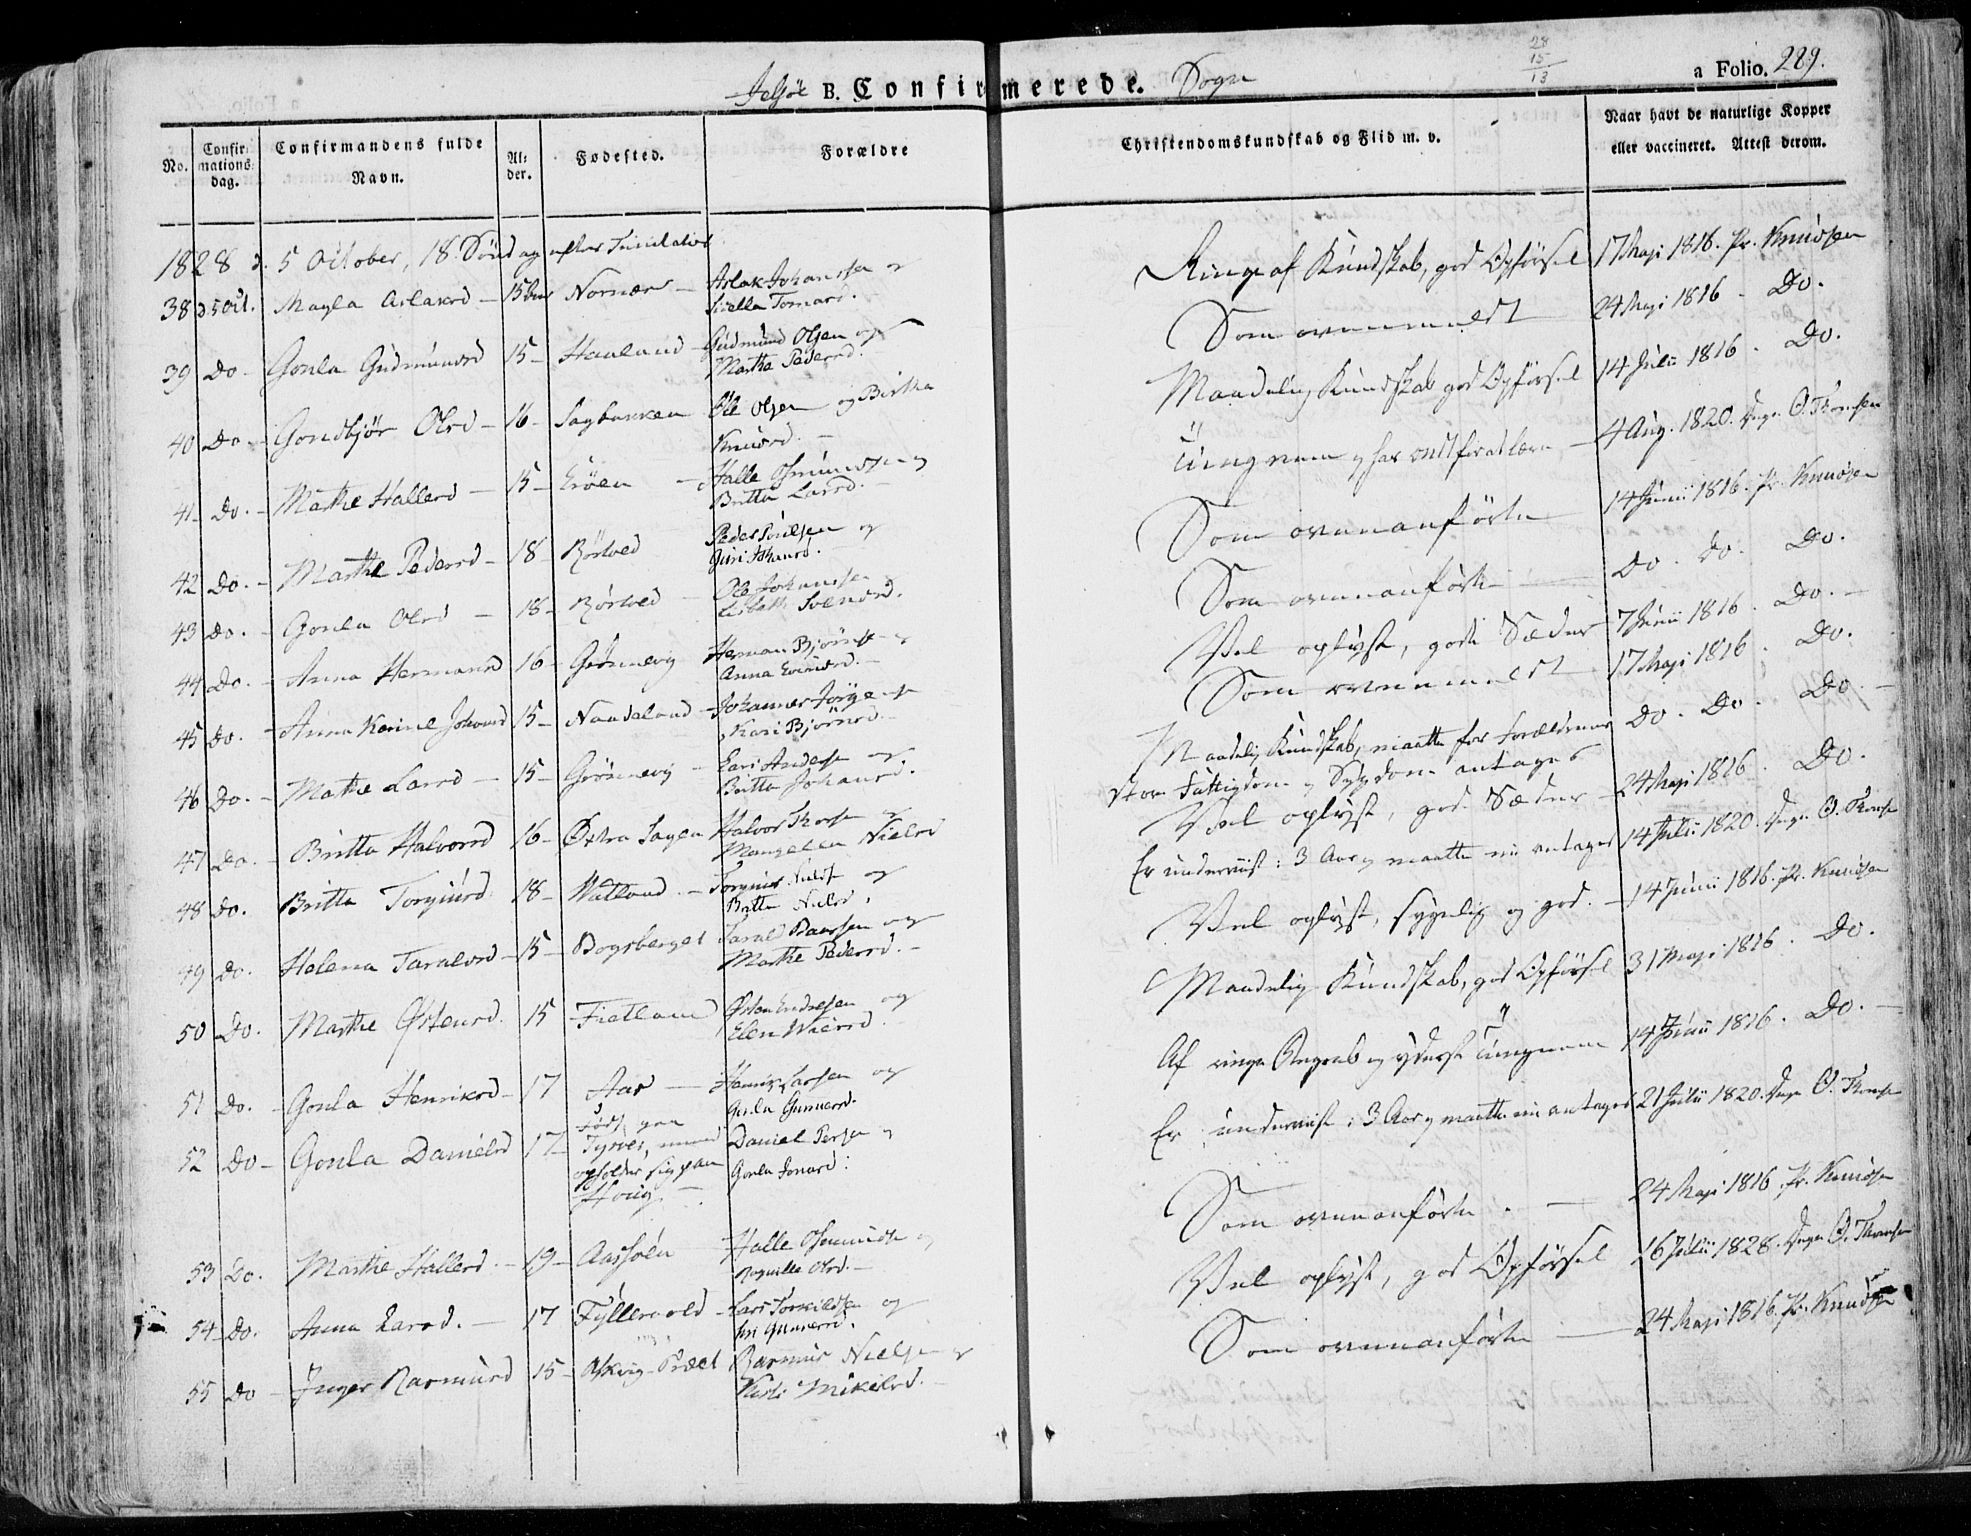 28
15
13
Jelsøe B. Confirmerede. Sogn
a Folio. 229.
No. Confirmationsdag. Confirmandens fulde Navn. Alder. Fødested. Forældre
Christendomskundskab og Flid m. v.
Naar havt de naturlige Kopper eller vaccineret. Attest derom.
1828 d. 5 October, 18. Søndag efter Trinitatis
38 d. 5 Oct. Magla Aslaksd - 15 Nornær - Aslak Johansen og
Tomasd. Ringe af Kundskab, god Opførsel 17 Maji 1816. Pr. Knudsen
39 Do - Gonla Gudmundsd 15 - Hauland - Gudmund Olsen og
Martha Pedersd. Som ovenmeldt 24 Maji 1816 - Do.
40 Do - Gondbjør Olsd - 16 - Sagbakken Ole Olsen og Birtha
Knudsd. - Maadelig Kundskab god Opførsel 14 Julii 1816 - Do.
41 - Do. - Marthe Hallesd - 15 - - Halle Osmundsen og
Britta Larsd. - Tungnem og har ondt for at lære - 4 Aug. 1820. O. Thomsen
42 Do. - Marthe Pedersd - 18 - Rørtved Peder Poulsen og
Guri Johansd. - Som ovenanførte 14 Junii 1816. Pr. Knudsen
43 Do. - Gonla Olsd - 18 - Rørtved - Ole Johansen
Lisbeth Svendsd. Som ovenanførte Do. Do. Do.
44 Do. - Anna Hermansd 16 - Grønnevig Herman Bjørns. og
Anna - Vel oplyst, gode Sæder 7 Junii 1816. Do. -
45 Do. - Anna Karine Johansd 15 - Naadeland - Johannes Jørgens.
Kari Bjørnsd. Som ovenmeldt 17 Maji 1816. Do.
46 Do. - Marthe Larsd - 15 - Grønnevig - Lars Anders. og
Britta Johansd. Maadelig Kundskab, maatte for Forældrenes Do. Do. Do. -
store Fattigdom og Sygdom antages
47 Do. - Britta Halvorsd 16 - Østre Sagen Halvor Thors. og
Nielsd Vel oplyst, gode Sæder - 24 Maji 1816. Do.
48 Do. Britta Torgiersd 18 - Watland. - Torgiers Niels. og
Britta Nielsd, Er underviist i 3 Aar og maatte nu antages 14 Julii 1820. O. Thoms.
49 Do. Helena Taralvsd - 15 - Bogsberget Taral Baarsen og
Marthe Pedersd. - Vel oplyst, sygelig og god. - 14 Junii 1816. Pr. Knudsen
50 Do. Marthe Østensd. 15 Fietland Østen Endresen og
Elen Maadelig Kundskab, god Opførsel 31 Maji 1816. Do.
51 Do. - Gonla Henriksd - 17 Aas - Henrik Larsen og
Gonla Gunnersd. Af ringe Begreb og yderst Tungnem 14 Junii 1816. Do. -
52 Do - Gonla Danielsd 17 - Født paa
Tysvær, men
opholder sig paa
Daniel Persen og
Gonla Jonasd: Er underviist i 3 Aar og maatte nu antages 21 Julii 1820. O. Thoms.
53 Do. Marthe Hallesd. - 19 - Halle Osmunds. og
Ragnilla Olsd. - Som ovenanførte. - 24 Maji 1816. Pr. Knudsen
54 - Do. Anna Larsd. - 17 - Lars Torkildsen og
Gunnersd. Vel oplyst, god Opførsel 16 Julii 1828. O. Thomsen
55 Do - Inger Rasmusd 15 - Rasmus Nielsen og
Mikkelsd. Som ovenanførte - 24 Maji 1816. Pr. Knudsen